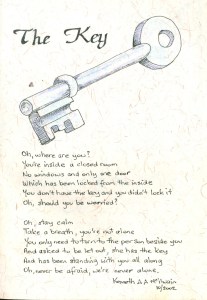 The Key
Oh, where are you?
You're inside a closed room
No windows and only one door
Which has been locked from the inside
You don't have the key and you didn't lock it
Oh, should you be worried?
Oh, stay calm
Take a breath, you're not alone
You only need to turn to the person beside you
And asked to be let out, she has the key
And has been standing with you all along
Oh, never be afraid, we're never alone.
Kenneth